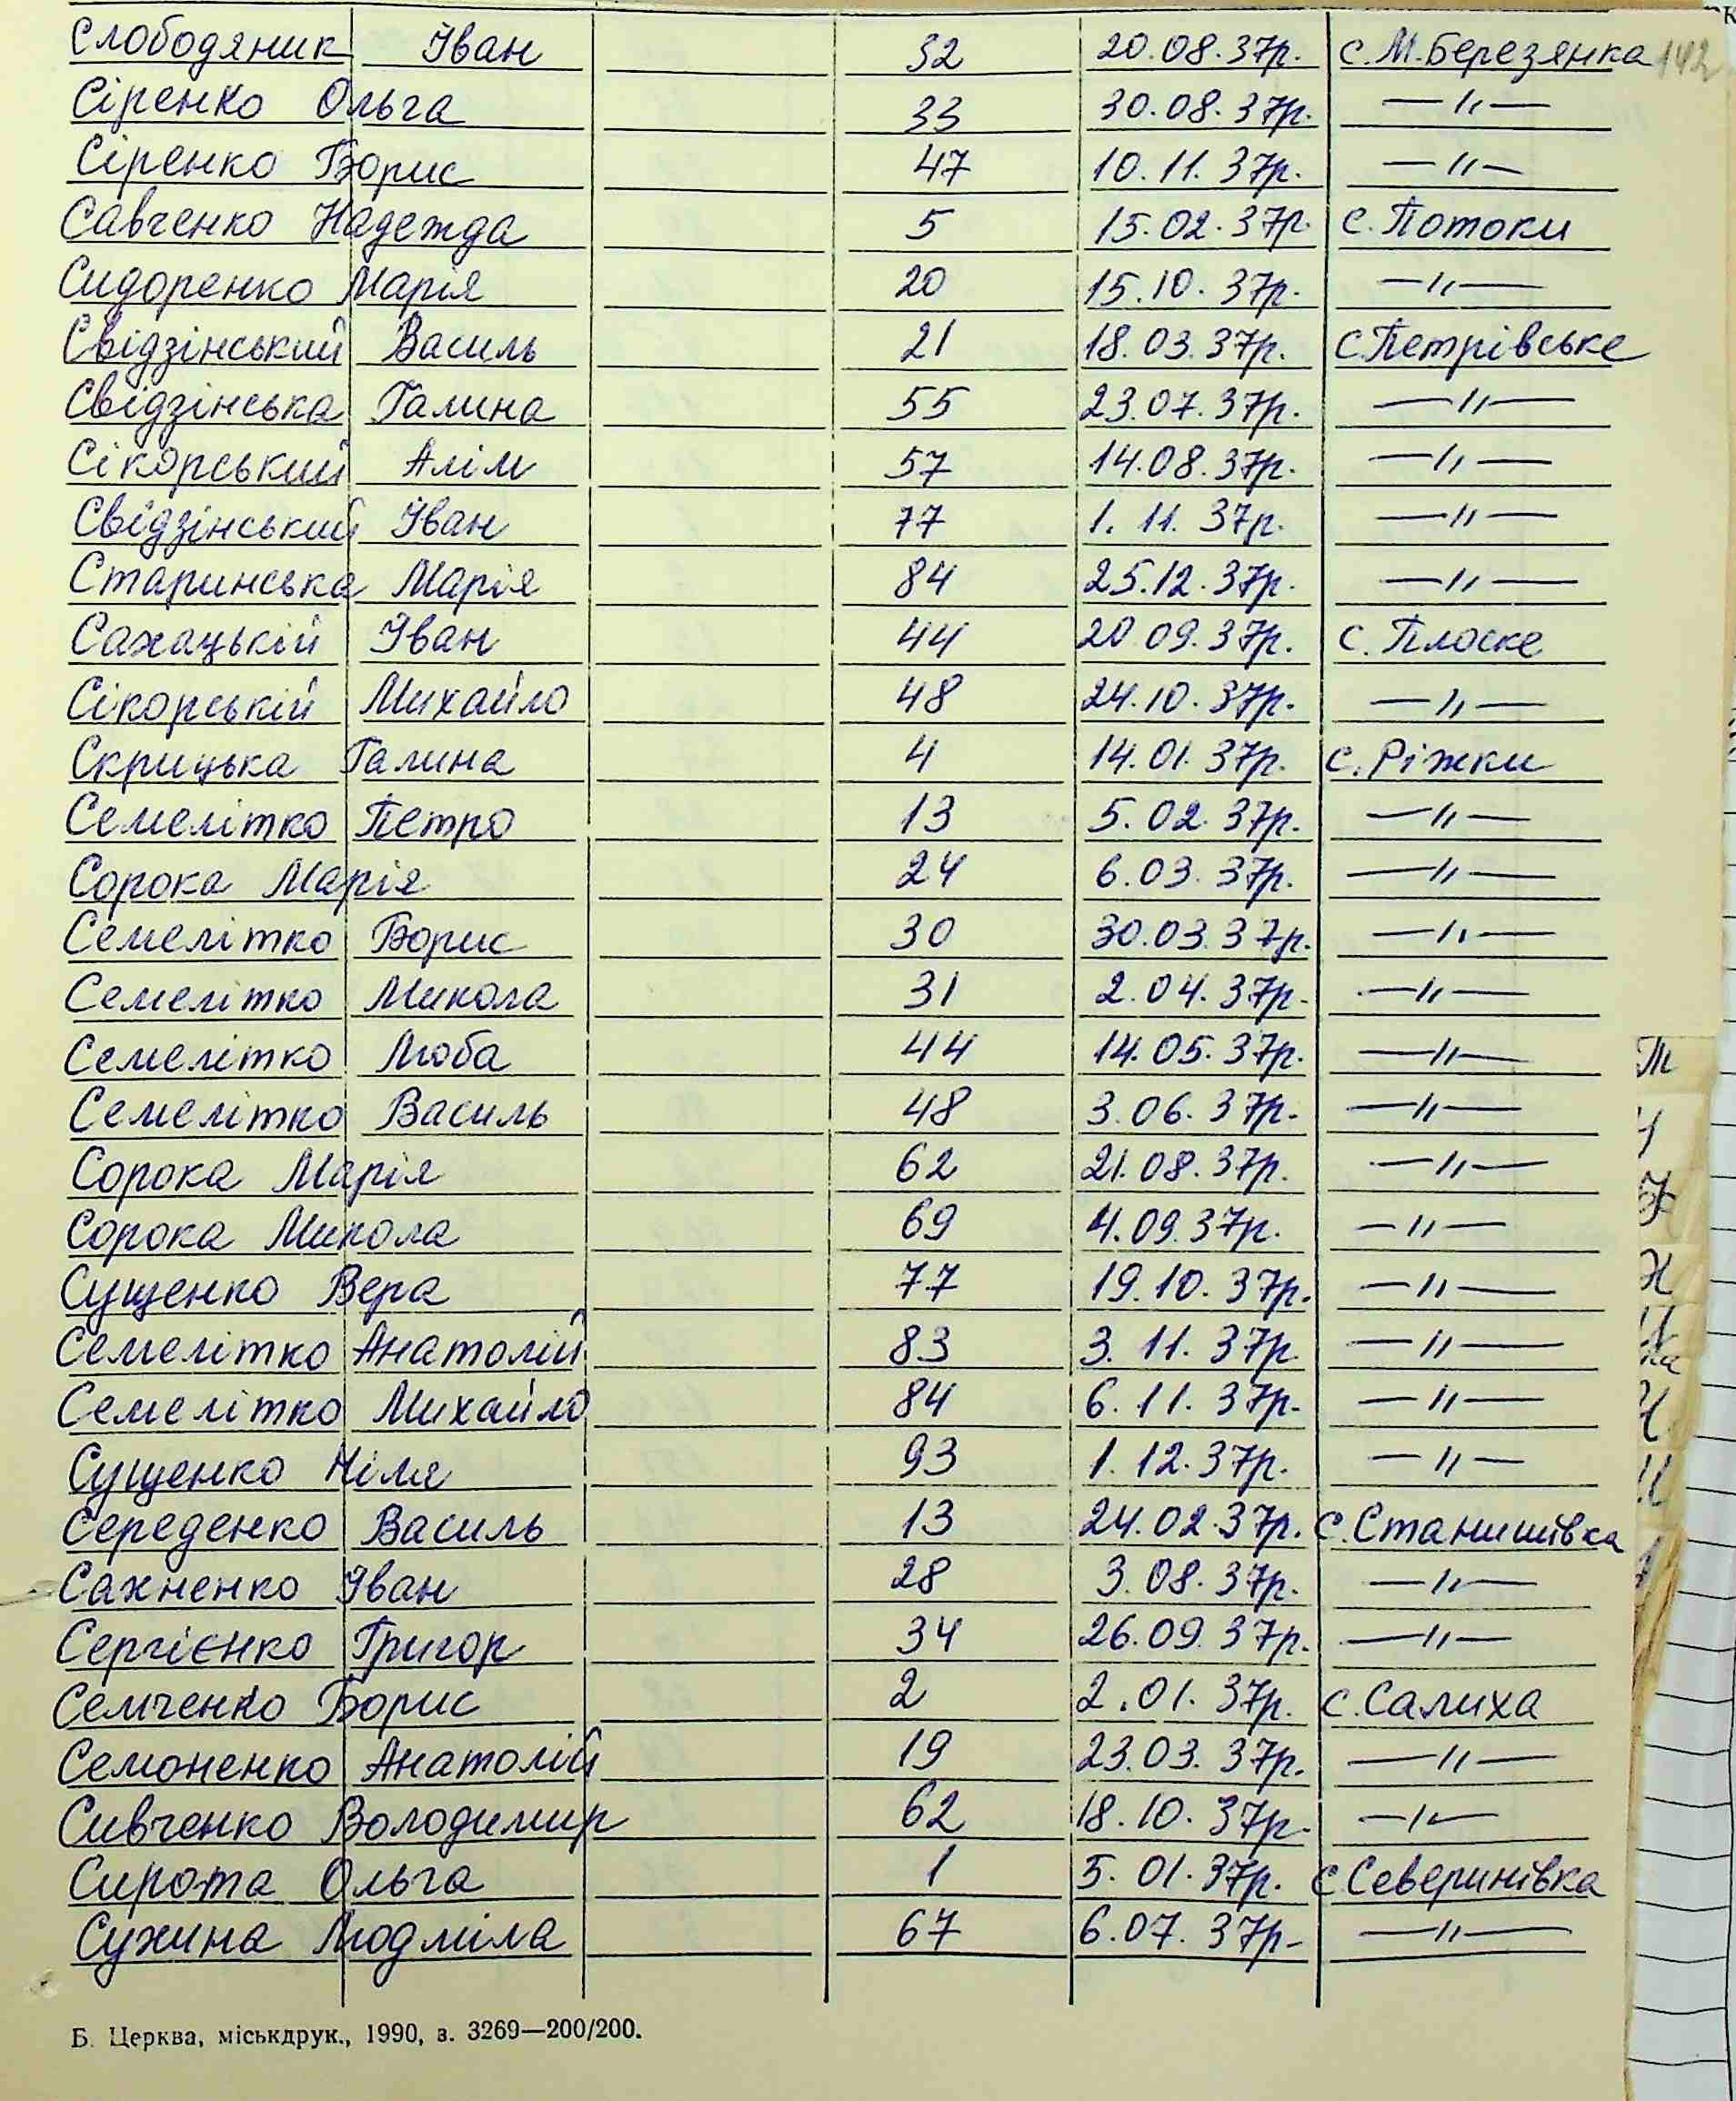 Слободяник Іван 32 20.08.37р. с.М.Березянка 142
Сіренко Ольга 33 30.08.37р. —〃—
Сіренко Борис 47 10.11.37р. —〃—
Савченко Надежда 5 15.02.37р. с.Потоки
Сидоренко Марія 20 15.10.37р. —〃—
Свідзінський Василь 21 18.03.37р. с.Петрівське
Свідзінська Галина 55 23.07.37р. —〃—
Сікорський Алім 57 14.08.37р. —〃—
Свідзінський Іван 77 1.11.37р. —〃—
Старинська Марія 84 25.12.37р. —〃—
Сахацькій Іван 44 20.09.37р. с. Плоске
Сікорській Михайло 48 24.10.37р. —〃—
Скрицька Галина 4 14.01.37р. с. Ріжки
Семелітко Петро 13 5.02.37р. —〃—
Сорока Марія 24 6.03.37р. —〃—
Семелітко Борис 30 30.03.37р. —〃—
Семелітко Микола 31 2.04.37р. —〃—
Семелітко Люба 44 14.05.37р. —〃—
Семелітко Василь 48 3.06.37р. —〃—
Сорока Марія 62 21.08.37р. —〃—
Сорока Микола 69 4.09.37р. —〃—
Сущенко Вера 77 19.10.37р. —〃—
Семелітко Анатолій 83 3.11.37р. —〃—
Семелітко Михайло 84 6.11.37р. —〃—
Сущенко Ніля 93 1.12.37р. —〃—
Середенко Василь 13 24.02.37р. с.Станишівка
Сахненко Іван 28 3.08.37р. —〃—
Сергієнко Григор 34 26.09.37р. —〃—
Семченко Борис 2 2.01.37р. с.Салиха
Семоненко Анатолій 19 23.03.37р. —〃—
Сивченко Володимир 62 18.10.37р. —〃—
Сирота Ольга 1 5.01.37р. с Северинівка
Сухина Людміла 67 6.07.37р. —〃—
Б. Церква, міськдрук., 1990, з. 3269—200/200.